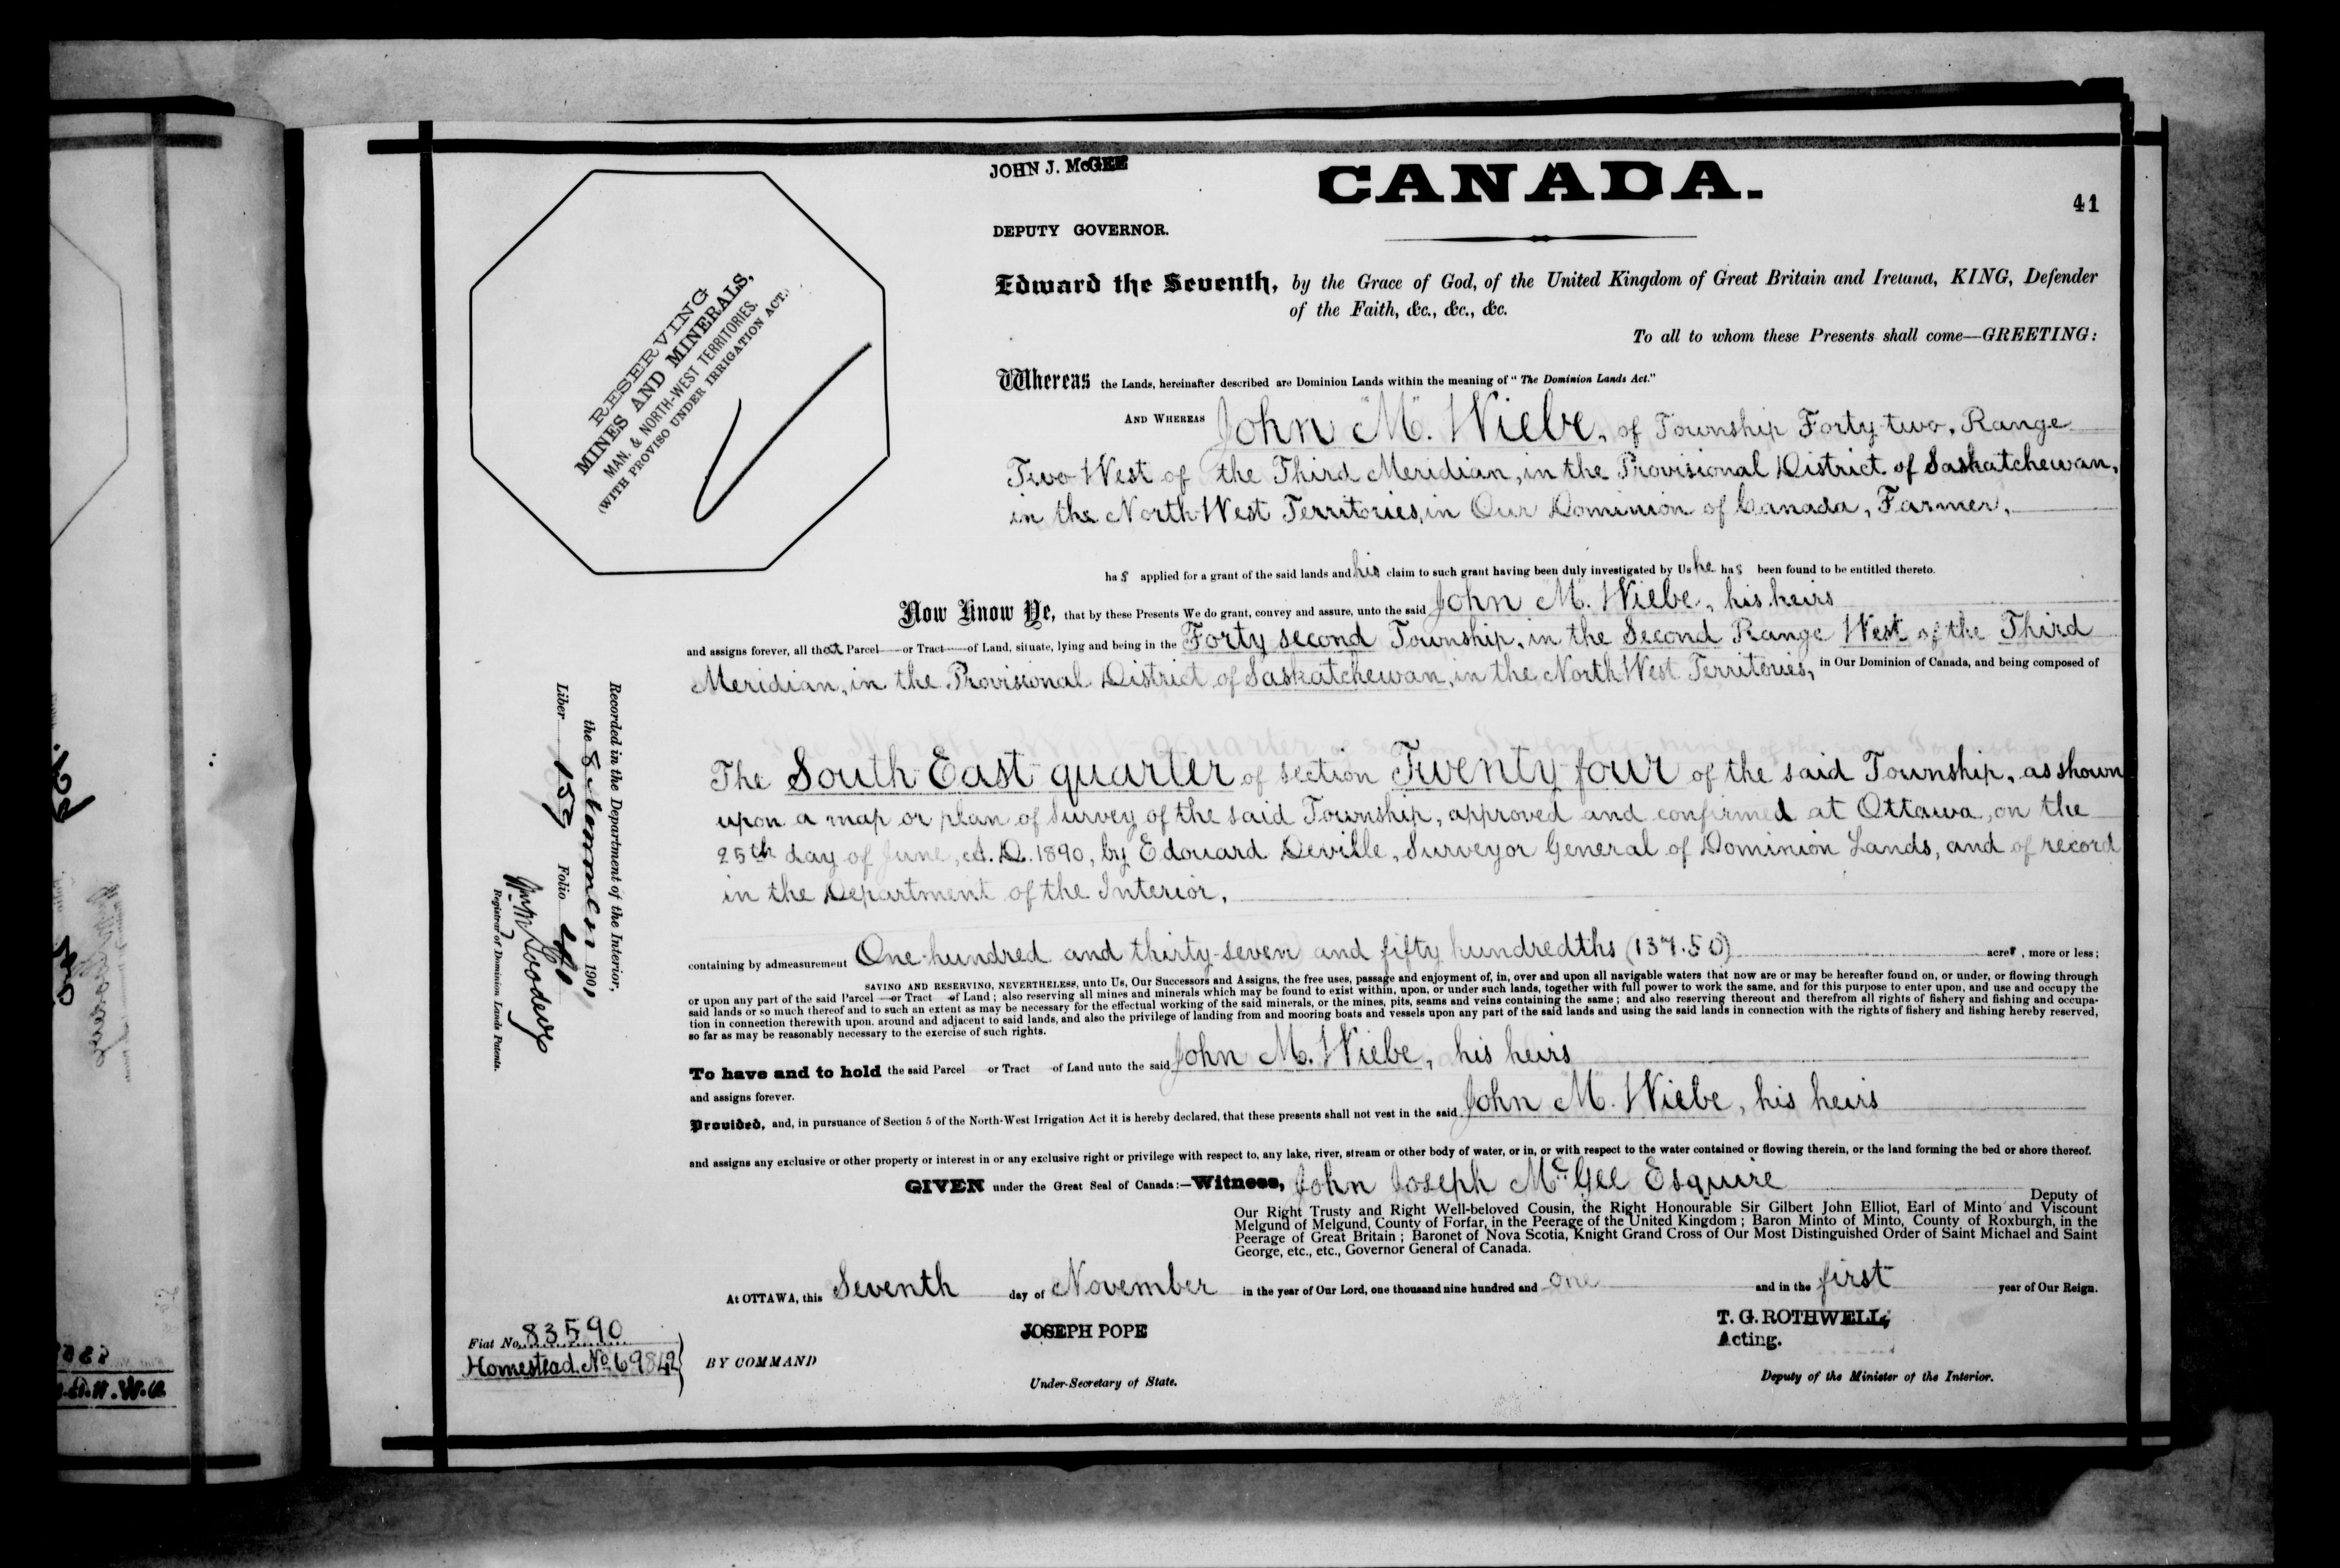 JOHN J. McGEE
CANADA.
41
DEPUTY GOVERNOR.
RESERVING
MINES AND MINERALS,
MAN. & NORTH-WEST TERRITORIES.
(WITH PROVISO UNDER IRRIGATION ACT.)
Edward the Seventh, by the Grace of God, of the United Kingdom of Great Britain and Ireland, KING, Defender
of the Faith, &c., &c., &c.
To all to whom these Presents shall come—GREETING:
Whereas the Lands, hereinafter described are Dominion Lands within the meaning of "The Dominion Lands Act."
AND WHEREAS John "M". Wiebe, of Township Forty-two, Range
Two West of the Third Meridian, in the Provisional District of Saskatchewan,
in the North-West Territories, in Our Dominion of Canada, Farmer,
has applied for a grant of the said lands and his claim to such grant having been duly investigated by Us he has been found to be entitled thereto.
Now Know Ye, that by these Presents We do grant, convey and assure, unto the said John "M". Wiebe, his heirs
and assigns forever, all that Parcel or Tract of Land, situate, lying and being in the Forty second Township, in the Second Range West of the Third
Meridian, in the Provisional District of Saskatchewan, in the North West Territories, in Our Dominion of Canada, and being composed of
The South East quarter of section Twenty four of the said Township, as shown
upon a map or plan of survey of the said Township, approved and confirmed at Ottawa, on the
25th day of June, A.D. 1890, by Edouard Deville, Surveyor General of Dominion Lands, and of record
in the Department of the Interior.
containing by admeasurement One hundred and thirty-seven and fifty hundredths (137.50) acres, more or less;
SAVING AND RESERVING, NEVERTHELESS, unto Us, Our Successors and Assigns, the free uses, passage and enjoyment of, in, over and upon all navigable waters that now are or may be hereafter found on, or under, or flowing through
or upon any part of the said Parcel or Tract of Land; also reserving all mines and minerals which may be found to exist within, upon, or under such lands, together with full power to work the same, and for this purpose to enter upon, and use and occupy the
said lands or so much thereof and to such an extent as may be necessary for the effectual working of the said minerals, or the mines, pits, seams and veins containing the same; and also reserving thereout and therefrom all rights of fishery and fishing and occupa-
tion in connection therewith upon, around and adjacent to said lands, and also the privilege of landing from and mooring boats and vessels upon any part of the said lands and using the said lands in connection with the rights of fishery and fishing hereby reserved,
so far as may be reasonably necessary to the exercise of such rights.
To have and to hold the said Parcel or Tract of Land unto the said John M. Wiebe, his heirs
and assigns forever.
Provided, and, in pursuance of Section 5 of the North-West Irrigation Act it is hereby declared, that these presents shall not vest in the said John "M". Wiebe, his heirs
and assigns any exclusive or other property or interest in or any exclusive right or privilege with respect to, any lake, river, stream or other body of water, or in, or with respect to the water contained or flowing therein, or the land forming the bed or shore thereof.
GIVEN under the Great Seal of Canada:—Witness, John Joseph McGee Esquire
Deputy of
Our Right Trusty and Right Well-beloved Cousin, the Right Honourable Sir Gilbert John Elliot, Earl of Minto and Viscount
Melgund of Melgund, County of Forfar, in the Peerage of the United Kingdom; Baron Minto of Minto, County of Roxburgh, in the
Peerage of Great Britain; Baronet of Nova Scotia, Knight Grand Cross of Our Most Distinguished Order of Saint Michael and Saint
George, etc., etc., Governor General of Canada.
At OTTAWA, this Seventh day of November in the year of Our Lord, one thousand nine hundred and one and in the first year of Our Reign.
JOSEPH POPE
T. G. ROTHWELL,
Acting.
Fiat No. 83590
Homestead No 69842
BY COMMAND
Under-Secretary of State.
Deputy of the Minister of the Interior.
Recorded in the Department of the Interior,
the 8 November 1901
Liber 159 Folio
Registrar of Dominion Lands Patents.